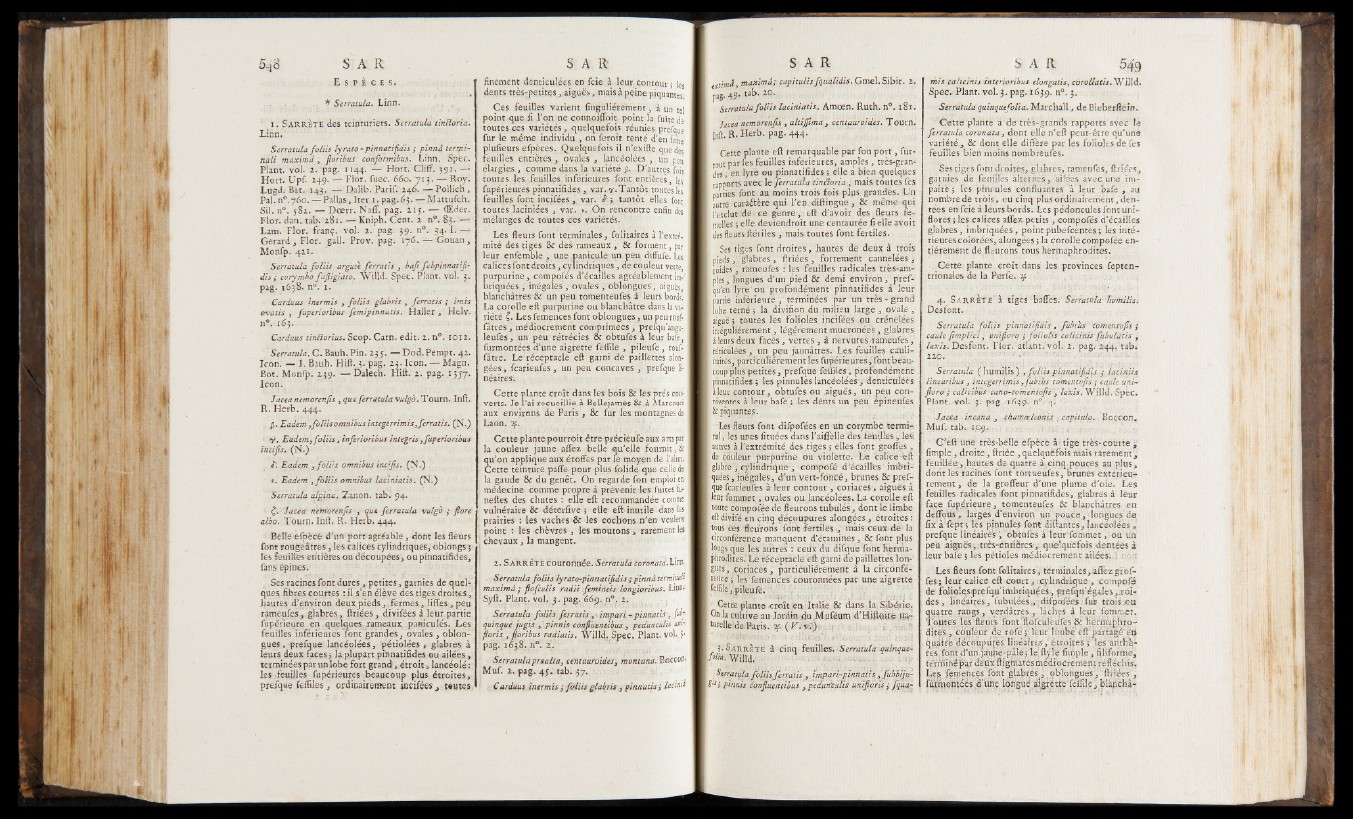 548 S A R
E S P È C E S.
* Serratula. Linn.
1. SARRÈTE des teinturiers. Serratula tinctoria.
Linn.
Serratula foliis lyrato-pinnatifidis ; pinnâ termi-
nali maximâ, floribus conformibus. Linn. Spec.
Plant. vol. 2. pag. 1144. — Hort. Cliff. 391. —
Hort. Upf. 249. — Flor. fuec. 660. 713. — Roy.
Lugd. Bat. 143. — Dalib. Parif. 246. — Pollich,
Pal. n°. 760. — Pallas, Iter 1. pag. 63. — Mattufch.
Sil. n°. 582. — Dœrr. Naff. pag. 215. — Œder.
Flor. dan. tab. 281. — Kniph. Cent. 2. n°. 83. —
Lam. Flor. franç. vol. 2. pag. 39. n°. 34. I. —
Gerard, Flor. gall. Prov. pag. 176. — Gouan,
Monfp. 421.
Serratula foliis argutè ferratis, bafi fubpinnatifi-
dis ; corymbo faftigiato. Willd. Spec. Plant. vol. 3.
pag. 1638. n°. 1.
Carduus inermis, foliis glabris, ferratis ; imis
ovatis, fuperioribus femipinnatis. Haller, Helv.
n°. 163.
Carduus tinctorius. Scop. Carn. edit. 2. n°. 1012.
Serratula. C. Bauh. Pin. 235. — Dod. Pempt. 42.
Icon. — J. Bauh. Hift. 3. pag. 23. Icon. — Magn.
Bot. Monfp. 239. — Dalech. Hift. 2. pag. 1357.
Icon.
Jacea nemorenfis, quæ ferratula vulgò. Tourn. Inft.
R. Herb. 444.
β. Eadem, foliis omnibus integerrimis, ferratis. (N.)
γ. Eadem, foliis, inferioribus integris, fuperioribus
incifis. (N.)
δ. Eadem, foliis omnibus incifis. (N.)
ε. Eadem, foliis omnibus laciniatis. (N.)
Serratula alpina. Zanon. tab. 94.
ζ. Jacea nemorenfis, quæ ferratula vulgò ; flore
albo. Tourn. Inft. R. Herb. 444.
Belle efpèce d'un port agréable, dont les fleurs
font rougeâtres, les calices cylindriques, oblongs ;
les feuilles entières ou découpées, ou pinnatifides,
fans épines.
Ses racines font dures, petites, garnies de quel-
ques fibres courtes : il s'en élève des tiges droites,
hautes d'environ deux pieds, fermes, liffes, peu
rameufes, glabres, ftriées, divifées à leur partie
fupérieure en quelques rameaux paniculés. Les
feuilles inférieures font grandes, ovales, oblon-
gues, prefque lancéolées, pétiolées, glabres à
leurs deux faces ; la plupart pinnatifides ou ailées,
terminées par un lobe fort grand, étroit, lancéolé :
les feuilles fupérieures beaucoup plus étroites,
prefque feffiles, ordinairement incifées, toutes
S A R
finement denticulées en fcie à leur contour ; les
dents très-petites, aiguës, mais à peine piquantes.
Ces feuilles varient fingulièrement, à un tel
point que fi l'on ne connoiffoit point la fuite de
toutes ces variétés, quelquefois réunies prefque
fur le même individu, on feroit tenté d'en faire
plufieurs efpèces. Quelquefois il n'exifte que des
feuilles entières, ovales, lancéolées, un peu
élargies, comme dans la variété β. D'autres fois
toutes les feuilles inférieures font entières, les
fupérieures pinnatifides, var. γ. Tantôt toutes les
feuilles font incifées, var. δ ; tantôt elles font
toutes laciniées, var. ε. On rencontre enfin des
mélanges de toutes ces variétés.
Les fleurs font terminales, folitaires à l'extré-
mité des tiges & des rameaux, & forment, par
leur enfemble, une panicule un peu diffufe. Les
calices font droits, cylindriques, de couleur verte,
purpurine, compofés d'écailles agréablement im-
briquées, inégales, ovales, oblongues, aiguës,
blanchâtres & un peu tomenteufes à leurs bords.
La corolle eft purpurine ou blanchâtre dans la va-
riété ζ. Les femences font oblongues, un peu rouf-
fâtres, médiocrement comprimées, prefqu'angu-
leufes, un peu rétrécies & obtufes à leur bafe,
furmontées d'une aigrette feffile, pileufe, rouf-
fâtre. Le réceptacle eft garni de paillettes alon-
gées, fcarieufes, un peu concaves, prefque li-
néaires.
Cette plante croît dans les bois & les prés cou-
verts. Je l'ai recueillie à Bellejamos & à Marcouffi
aux environs de Paris, & fur les montagnes de
Laon. ♃.
Cette plante pourroit être précieufe aux arts par
la couleur jaune affez belle qu'elle fournit, &
qu'on applique aux étoffes par le moyen de l'alun.
Cette teinture paffe pour plus folide que celle de
la gaude & du genêt. On regarde fon emploi en
médecine comme propre à prévenir les fuites fu-
neftes des chutes : elle eft recommandée comme
vulnéraire & déterfive ; elle eft inutile dans les
prairies : les vaches & les cochons n'en veulent
point : les chèvres, les moutons, rarement les
chevaux, la mangent.
2. SARRÈTE couronnée. Serratula coronata. Linn.
Serratula foliis lyrato-pinnatifidis ; pinnâ terminali
maximâ ; flofculis radii femineis longioribus. Linn.
Syft. Plant. vol. 3. pag. 669. n°. 2.
Serratula foliis ferratis, impari-pinnatis, fub-
quinque jugis, pinnis confluentibus, pedunculis uni-
floris, floribus radiatis. Willd. Spec. Plant. vol. 3.
pag. 1638. n°. 2.
Serratula præalta, centauroides, montana. Boccon.
Muf. 2. pag. 45. tab. 37.
Carduus inermis ; foliis glabris, pinnatis ; laciniâ
S A R
extimâ, maximâ ; capitulis fqualidis. Gmel. Sibir. 2.
pag. 49. tab. 20.
Serratula foliis laciniatis. Amœn. Ruth. n°. 181.
Jacea nemorenfis, altiffima, centauroides. Tourn.
Inft. R. Herb. pag. 444.
Cette plante eft remarquable par fon port, fur-
tout par fes feuilles inférieures, amples, très-gran-
des, en lyre ou pinnatifides : elle a bien quelques
rapports avec le ferratula tinctoria, mais toutes fes
parties font au moins trois fois plus grandes. Un
autre caractère qui l'en diftingue, & même qui
l'exclut de ce genre, eft d'avoir des fleurs fe-
melles ; elle deviendroit une centaurée fi elle avoit
des fleurs ftériles, mais toutes font fertiles.
Ses tiges font droites, hautes de deux à trois
pieds, glabres, ftriées, fortement cannelées,
roides, rameufes : les feuilles radicales très-am-
ples, longues d'un pied & demi environ, pref-
qu'en lyre ou profondément pinnatifides à leur
partie inférieure, terminées par un très-grand
lobe terné ; la divifion du milieu large, ovale,
aiguë ; toutes les folioles incifées ou crénelées
irrégulièrement, légérement mucronées, glabres
à leurs deux faces, vertes, à nervures rameufes,
réticulées, un peu jaunâtres. Les feuilles cauli-
naires, particuliérement les fupérieures, font beau-
coup plus petites, prefque feffiles, profondément
pinnatifides ; les pinnules lancéolées, denticulées
à leur contour, obtufes ou aiguës, un peu con-
niventes à leur bafe ; les dents un peu épineufes
& piquantes.
Les fleurs font difpofées en un corymbe termi-
nal, les unes fituées dans l'aiffelle des feuilles, les
autres à l'extrémité des tiges ; elles font groffes,
de couleur purpurine ou violette. Le calice eft
glabre, cylindrique, compofé d'écailles imbri-
quées, inégales, d'un vert-foncé, brunes & pref-
que fcarieufes à leur contour, coriaces, aiguës à
leur fommet, ovales ou lancéolées. La corolle eft
toute compofée de fleurons tubulés, dont le limbe
eft divifé en cinq découpures alongées, étroites :
tous ces fleurons font fertiles, mais ceux de la
circonférence manquent d'étamines, & font plus
longs que les autres : ceux du difque font herma-
phrodites. Le réceptacle eft garni de paillettes lon-
gues, coriaces, particuliérement à la circonfé-
rence ; les femences couronnées par une aigrette
feffile, pileufe.
Cette plante croît en Italie & dans la Sibérie.
On la cultive au Jardin du Mufeum d'Hiftoire na-
turelle de Paris. ♃. (V. v.)
3. SARRÈTE à cinq feuilles. Serratula quinque-
folia. Willd.
Serratula foliis ferratis, impari-pinnatis, fubbiju-
gis ; pinnis confluentibus, pedunculis unifloris ; fqua-
S A R 549
mis calicinis interioribus elongatis, corollatis. Willd.
Spec. Plant. vol. 3. pag. 1639. n°. 3.
Serratula quinquefolia. Marchall, de Bieberftein.
Cette plante a de très-grands rapports avec le
ferratula coronata, dont elle n'eft peut-être qu'une
variété, & dont elle diffère par les folioles de fes
feuilles bien moins nombreufes.
Ses tiges font droites, glabres, rameufes, ftriées,
garnies de feuilles alternes, ailées avec une im-
paire ; les pinnules confluantes à leur bafe, au
nombre de trois, ou cinq plus ordinairement, den-
tées en fcie à leurs bords. Les pédoncules font uni-
flores ; les calices affez petits, compofés d'écailles
glabres, imbriquées, point pubefcentes ; les inté-
rieures colorées, alongées ; la corolle compofée en-
tiérement de fleurons tous hermaphrodites.
Cette plante croît dans les provinces fepten-
trionales de la Perfe. ♃
4. SARRÈTE à tiges baffes. Serratula humilis.
Desfont.
Serratula foliis pinnatifidis, fubtùs tomentofis ;
caule fimplici, unifloro ; foliolis calicinis fubulatis,
laxis. Desfont. Flor. atlant. vol. 2. pag. 244. tab.
220.
Serratula (humilis), foliis pinnatifidis ; laciniis
linearibus, integerrimis, fubtùs tomentofis ; caule uni-
floro ; calicibus cano-tomentofis, laxis. Willd. Spec.
Plant. vol. 3. pag. 1639. n°. 4.
Jacea incana, chamæleonis, capitulo. Boccon.
Muf. tab. 109.
C'eft une très-belle efpèce à tige très-courte,
fimple, droite, ftriée, quelquefois mais rarement,
feuillée, hautes de quatre à cinq pouces au plus,
dont les racines font tortueufes, brunes extérieu-
rement, de la groffeur d'une plume d'oie. Les
feuilles radicales font pinnatifides, glabres à leur
face fupérieure, tomenteufes & blanchâtres en
deffous, larges d'environ un pouce, longues de
fix à fept ; les pinnules font diftantes, lancéolées,
prefque linéaires, obtufes à leur fommet, ou un
peu aiguës, très-entières, quelquefois dentées à
leur bafe ; les pétioles médiocrement ailées.
Les fleurs font folitaires, terminales, affez grof-
fes ; leur calice eft court, cylindrique, compofé
de folioles prefqu'imbriquées, prefqu'égales, roi-
des, linéaires, fubulées, difpofées fur trois ou
quatre rangs, verdâtres, lâches à leur fommet.
Toutes les fleurs font flofculeufes & hermaphro-
dites, couleur de rofe ; leur limbe eft partagé en
quatre découpures linéaires, étroites ; les anthè-
res font d'un jaune-pâle ; le ftyle fimple, filiforme,
terminé par deux ftigmates médiocrement réfléchis.
Les femences font glabres, oblongues, ftriées,
furmontées d'une longue aigrette feffile, blanchâ-